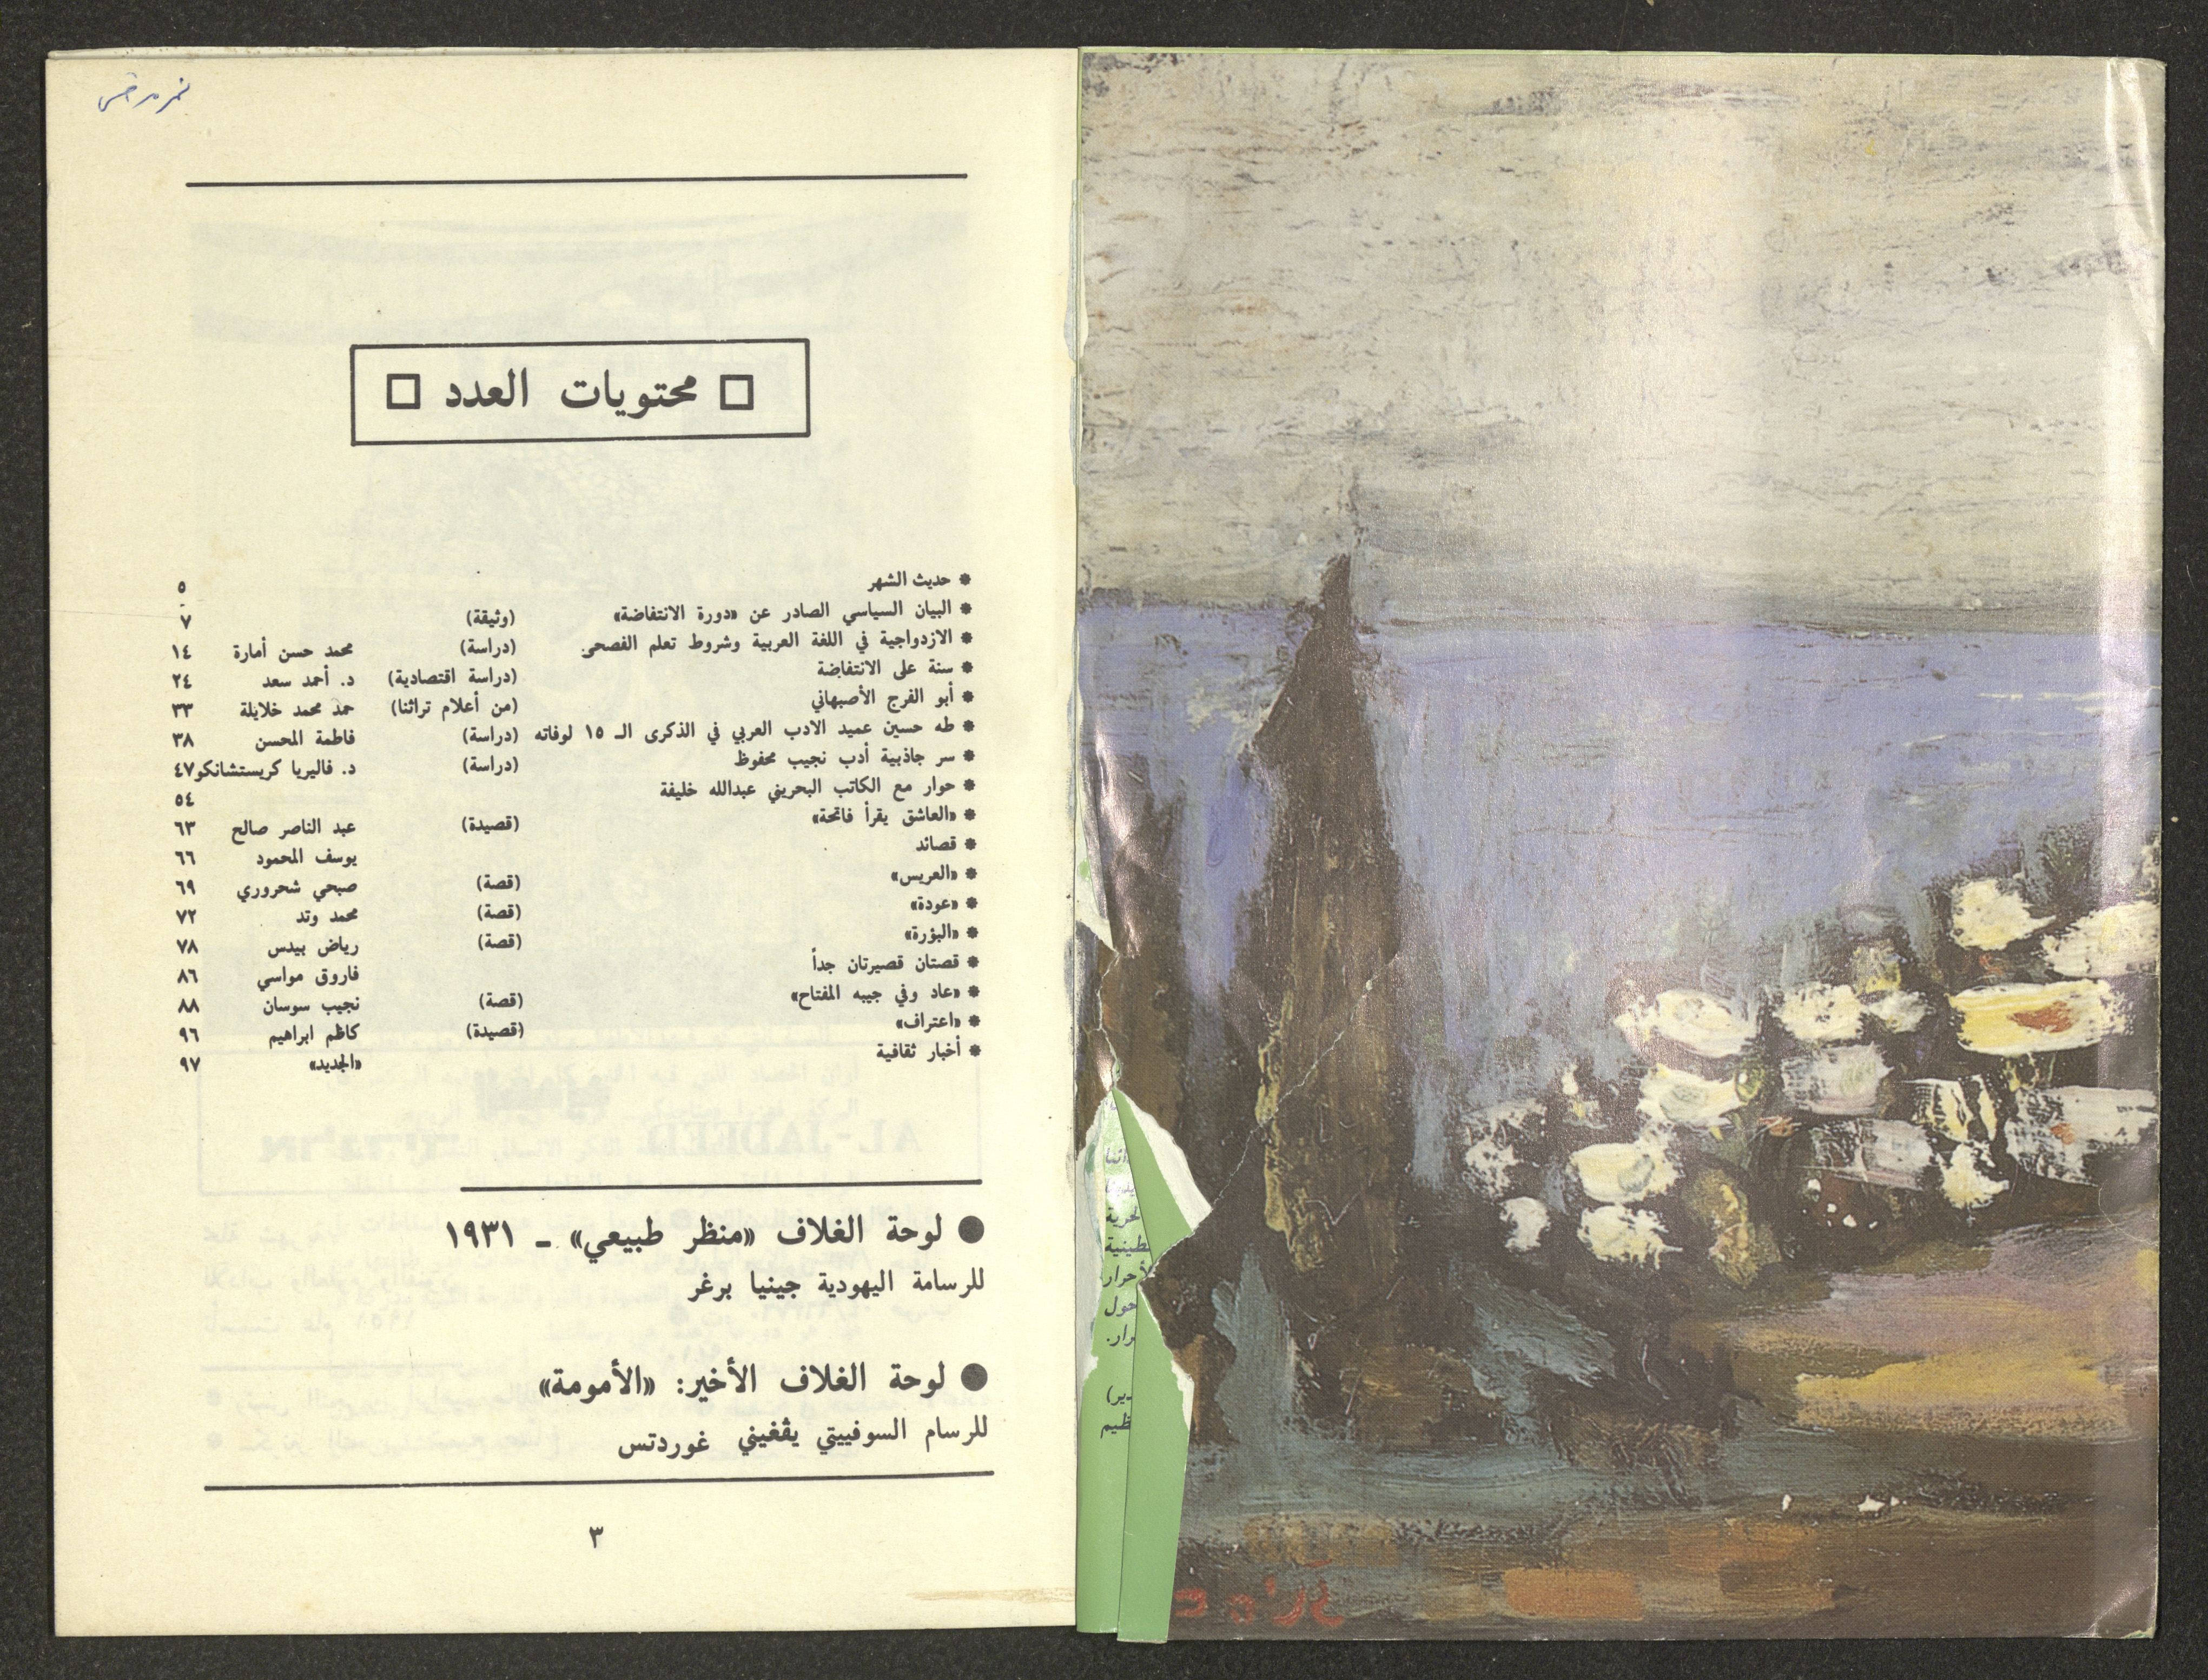 □ محتويات العدد □
* حديث الشهر ٥
* البيان السياسي الصادر عن «دورة الانتفاضة» (وثيقة) ٧
* الازدواجية في اللغة العربية وشروط تعلم الفصحى (دراسة) محمد حسن أمارة ١٤
* سنة على الانتفاضة (دراسة اقتصادية) د. أحمد سعد ٢٤
* أبو الفرج الأصبهاني (من أعلام تراثنا) حمد محمد خلايلة ٣٣
* طه حسين عميد الادب العربي في الذكرى الـ ١٥ لوفاته (دراسة) فاطمة المحسن ٣٨
* سر جاذبية أدب نجيب محفوظ (دراسة) د. فاليريا كريستشانكو ٤٧
* حوار مع الكاتب البحريني عبدالله خليفة ٥٤
* «العاشق يقرأ فاتحة» (قصيدة) عبد الناصر صالح ٦٣
* قصائد يوسف المحمود ٦٦
* «العريس» (قصة) صبحي شحروري ٦٩
* «عودة» (قصة) محمد وتد ٧٢
* «البؤرة» (قصة) رياض بيدس ٧٨
* قصتان قصيرتان جداً فاروق مواسي ٨٦
* «عاد وفي جيبه المفتاح» (قصة) نجيب سوسان ٨٨
* «اعتراف» (قصيدة) كاظم ابراهيم ٩٦
* أخبار ثقافية «الجديد» ٩٧
● لوحة الغلاف «منظر طبيعي» ـ ١٩٣١
للرسامة اليهودية جينيا برغر
● لوحة الغلاف الأخير: «الأمومة»
للرسام السوفييتي يڤغيني غوردتس
٣
حول